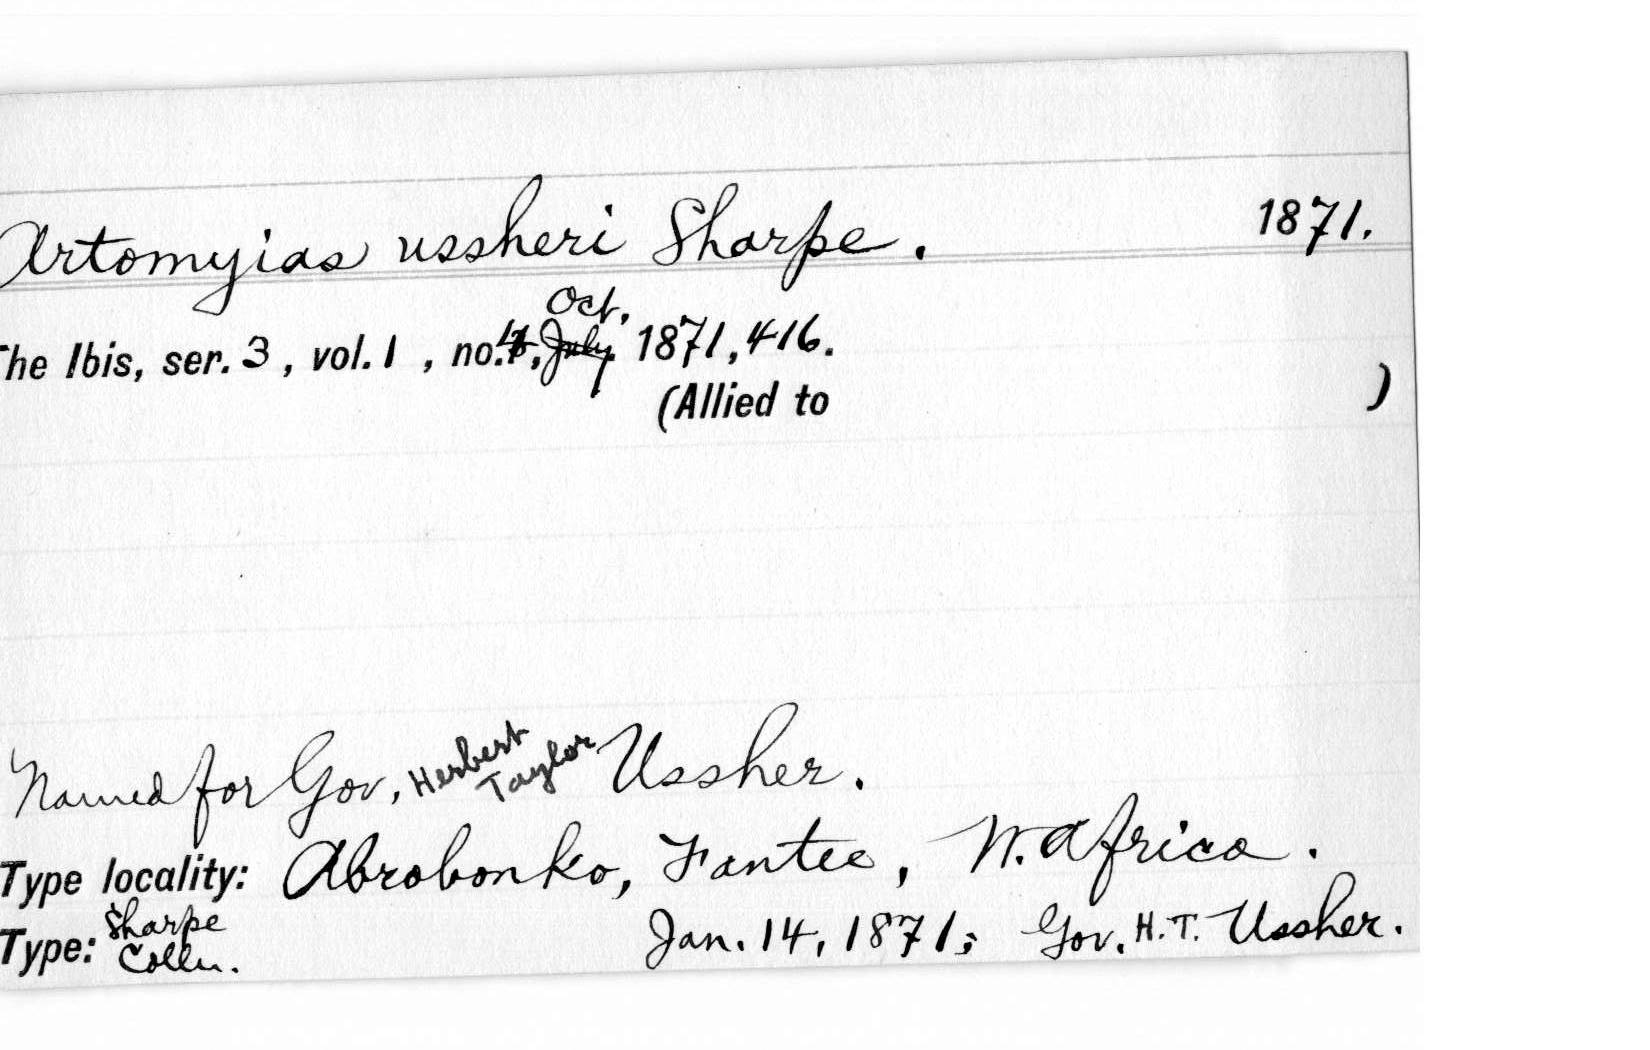 Artomyias ussheri Sharpe. 1871.
Oct.
The Ibis, ser. 3, vol. 1, no. 4, July 1871, 416.
(Allied to )
Named for Gov. Herbert Taylor Ussher.
Type locality: Abrobonko, Fantee, W. Africa.
Type: Sharpe Colln. Jan. 14, 1871; Gov. H. T. Ussher.